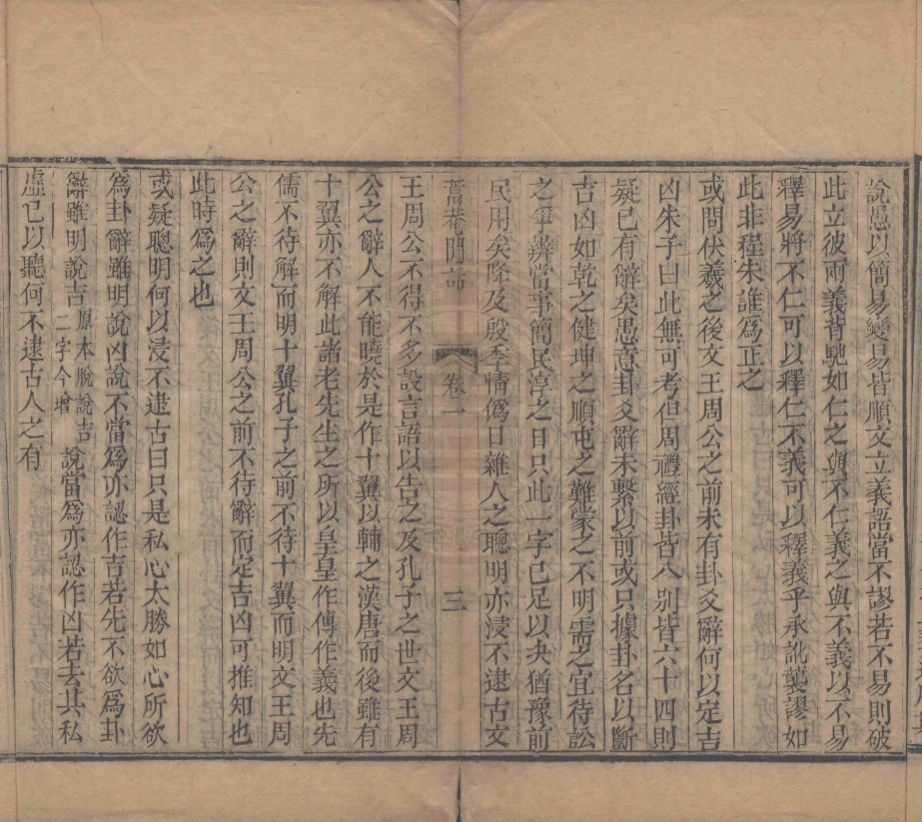 說愚以簡易變易皆順文立義語當不謬若不易則破
此立彼兩義背馳如仁之與不仁義之與不義以不易
釋易將不仁可以釋仁不義可以釋義乎承訛襲謬如
此非程朱誰為正之
或問伏羲之後文王周公之前未有卦爻辭何以定吉
凶朱子曰此無可考但周禮經卦皆八别皆六十四則
疑已有辭矣愚意卦爻辭未繫以前或只據卦名以斷
吉凶如乾之健坤之順屯之難蒙之不明需之宜待訟
之爭辨當事簡民淳之日只此一字已足以決猶豫前
民用矣降及殷季情僞日雜人之聰明亦浸不逮古文
蒿菴閒話
卷一
三
王周公不得不多設言語以告之及孔子之世文王周
公之辭人不能曉於是作十翼以輔之漢唐而後雖有
十翼亦不解此諸老先生之所以皇皇作傳作義也先
儒不待解而明十翼孔子之前不待十翼而明文王周
公之辭則文王周公之前不待辭而定吉凶可推知也
此時為之也
或疑聰明何以浸不逮古曰只是私心太勝如心所欲
為卦辭雖明說凶說不當為亦認作吉若先不欲為卦
辭雖明說吉原本脫說吉二字今增說當為亦認作凶若去其私
虛已以聽何不逮古人之有